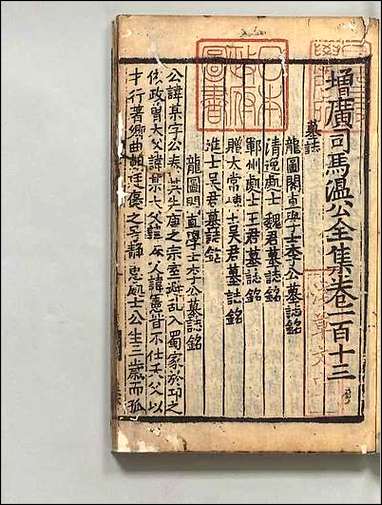 增廣司馬温公全集卷一百十三
墓誌
龍圖閣直學士李公墓誌銘
清逸處士魏君墓誌銘
鄆州處士王君墓誌銘
贈太常博士吳君墓誌銘
進士吳君墓誌銘
龍圖閣直學士李公墓誌銘
公諱某字公素其先唐之宗室避乱入蜀家於卭之
依政曽大父諱 大父諱 父諱 皆不仕 父以
才行著鄉曲 之号静 處士公生三歳而孤
日本
政府
圖書